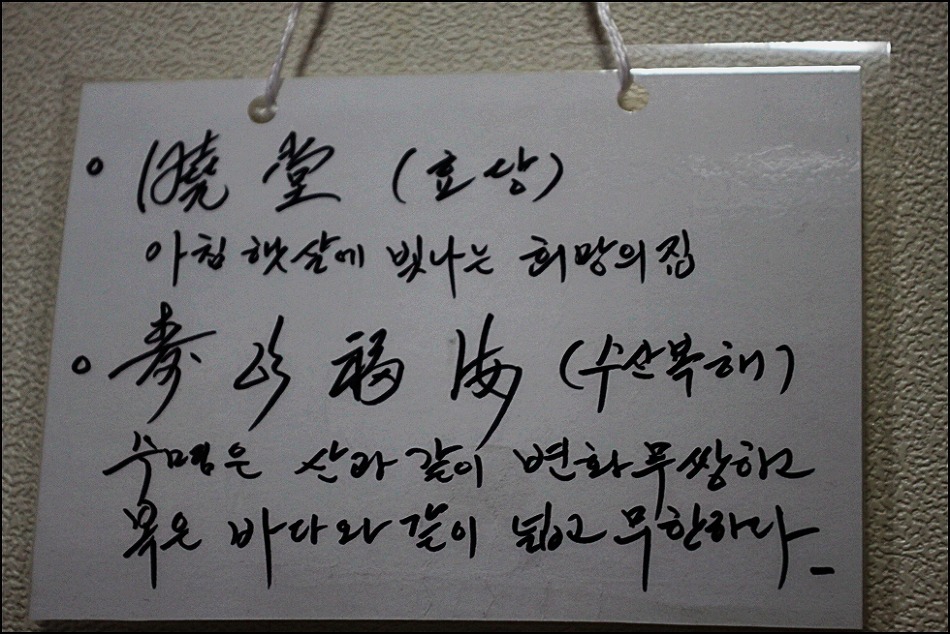 ○ 曉堂 (효상)
아침 햇살에 빛나는 희망의 집
○ 壽山福海 (수산복해)
수명은 산과 같이 변화무쌍하고
복은 바다와 같이 넓고 무한하다_